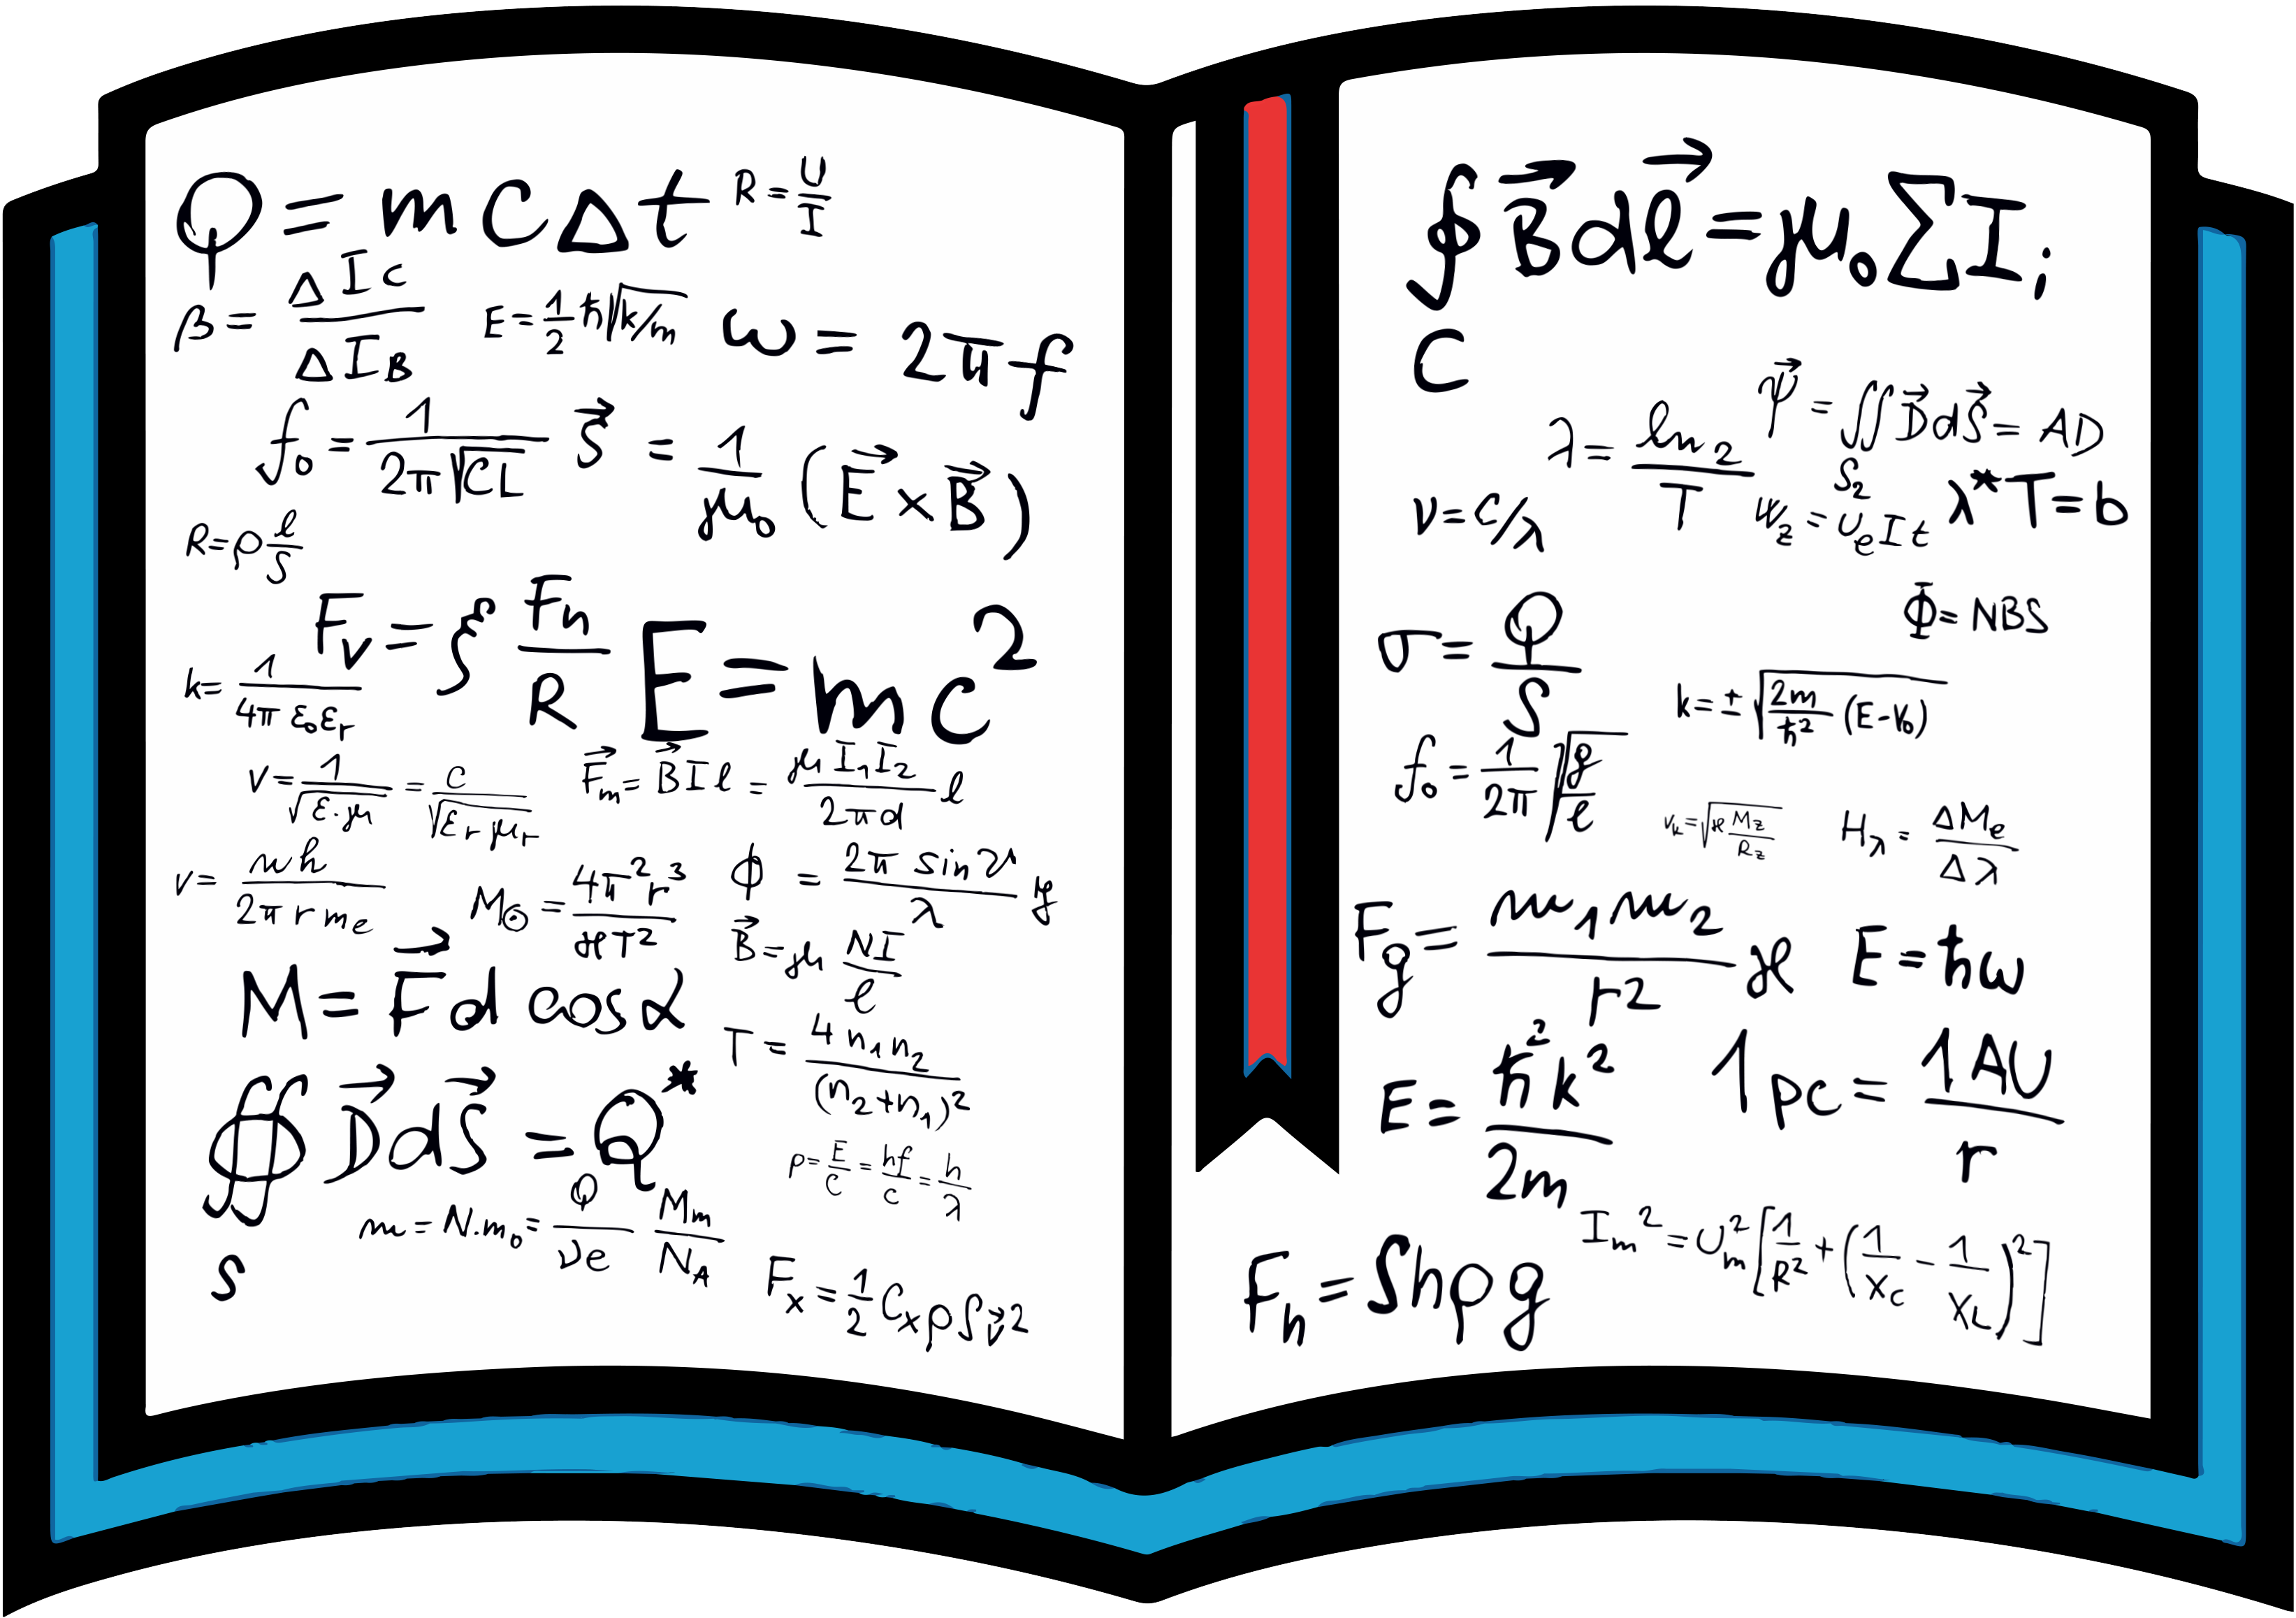 Q = m c Δt
R = U/I
β = ΔIc/ΔI_B
E = 1/2 ħ√(k/m)
ω = 2πf
f₀ = 1/(2π√(CL))
S⃗ = 1/μ₀ (E⃗ × B⃗)
R = ρ ℓ/S
F_v = ∫ Fn/R
E = mc²
k = 1/(4π ε₀ε_r)
v = 1/√(ε·μ) = c/√(ε_r μ_r)
F⃗_m = B⃗ I ℓ = μ I₁I₂/(2πd) ℓ
v = nh/(2π r m_e)
M_⊙ = 4π²r³/(ϰT²)
ϕ = 2π sin ϑ/λ y
B⃗ = μ NI/ℓ
M = F⃗ d cos α
T = 4 n₁n₂/(n₂+n₁)²
∯ D⃗ dS⃗ = Q*
S
p = E/c = hf/c = h/λ
m = N·m₀ = Q/(νe) M_m/N_A
F_x = 1/2 C_x ρ S v⃗²
∮ B⃗ dℓ⃗ = μ₀ Σ I_i
C
ψ⃗ = ∬ D⃗ dS⃗ = AD
S₂
λ = ℓn 2/T
ν = c/λ
W_z = U_e I t
λ*T = b
Φ = NBS
σ = Q/S
k = ±√(2m/ħ² (E-V₀))
f₀ = 1/(2π) √(g/ℓ)
v_k = √(ϰ M_z/R_z)
H_λ = ΔM_e/Δλ
F_g = m₁m₂/r² ϰ
E = ħω
E = ħ²k²/2m
1 pc = 1 AU/r
I_m² = U_m² [1/R² + (1/X_C − 1/X_L)²]
F_h = Shρg